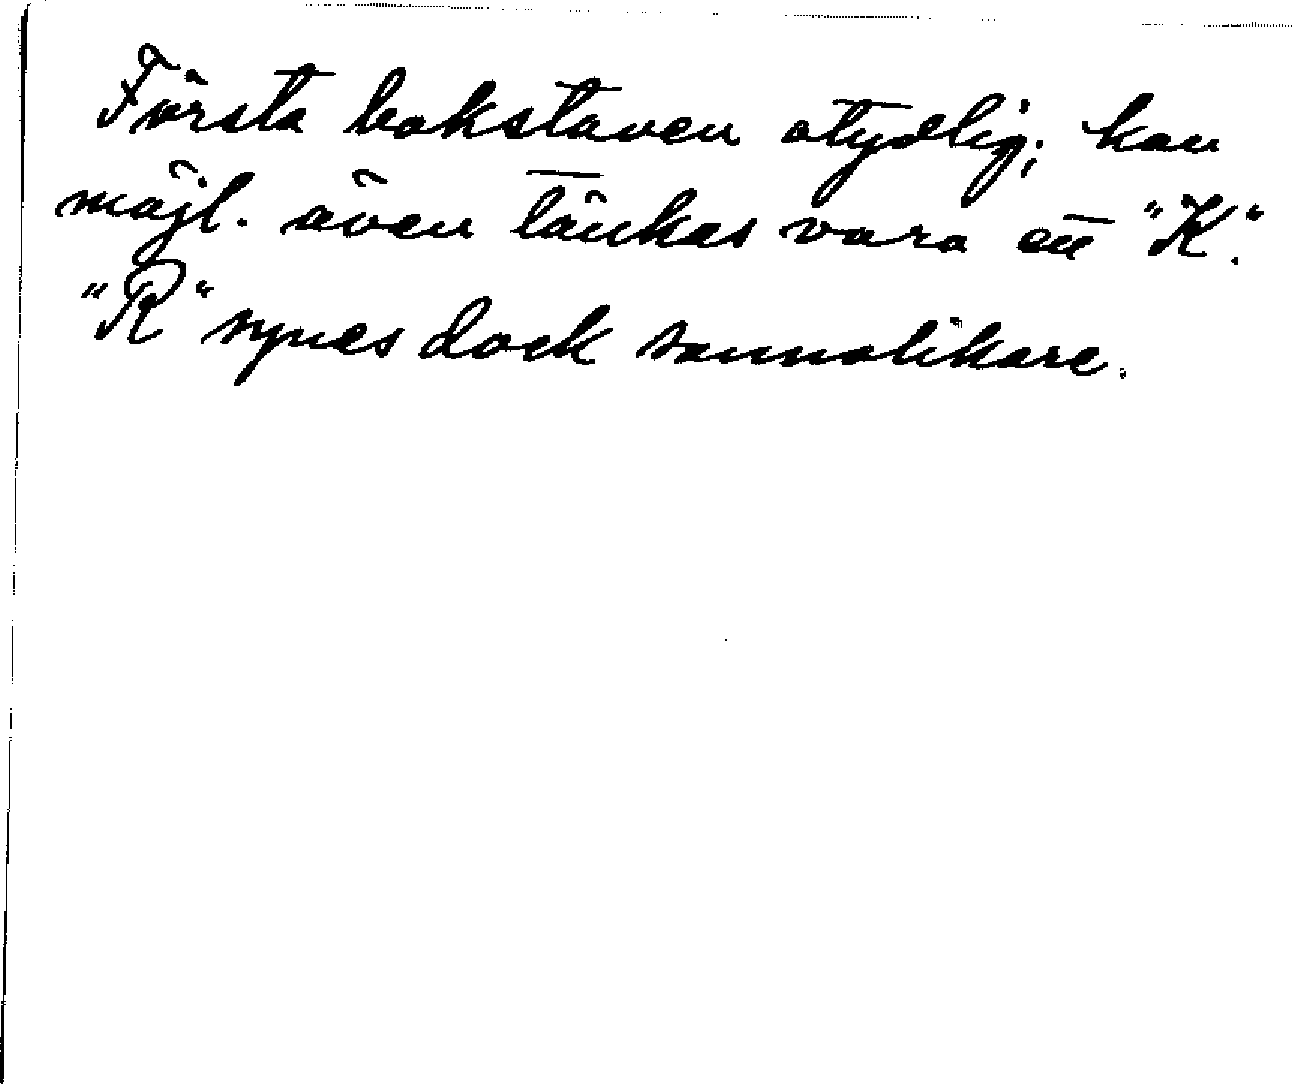 Första bokstaven otydlig; kan
möjl. även tänkas vara ett "K".
"R" synes dock sannolikare.